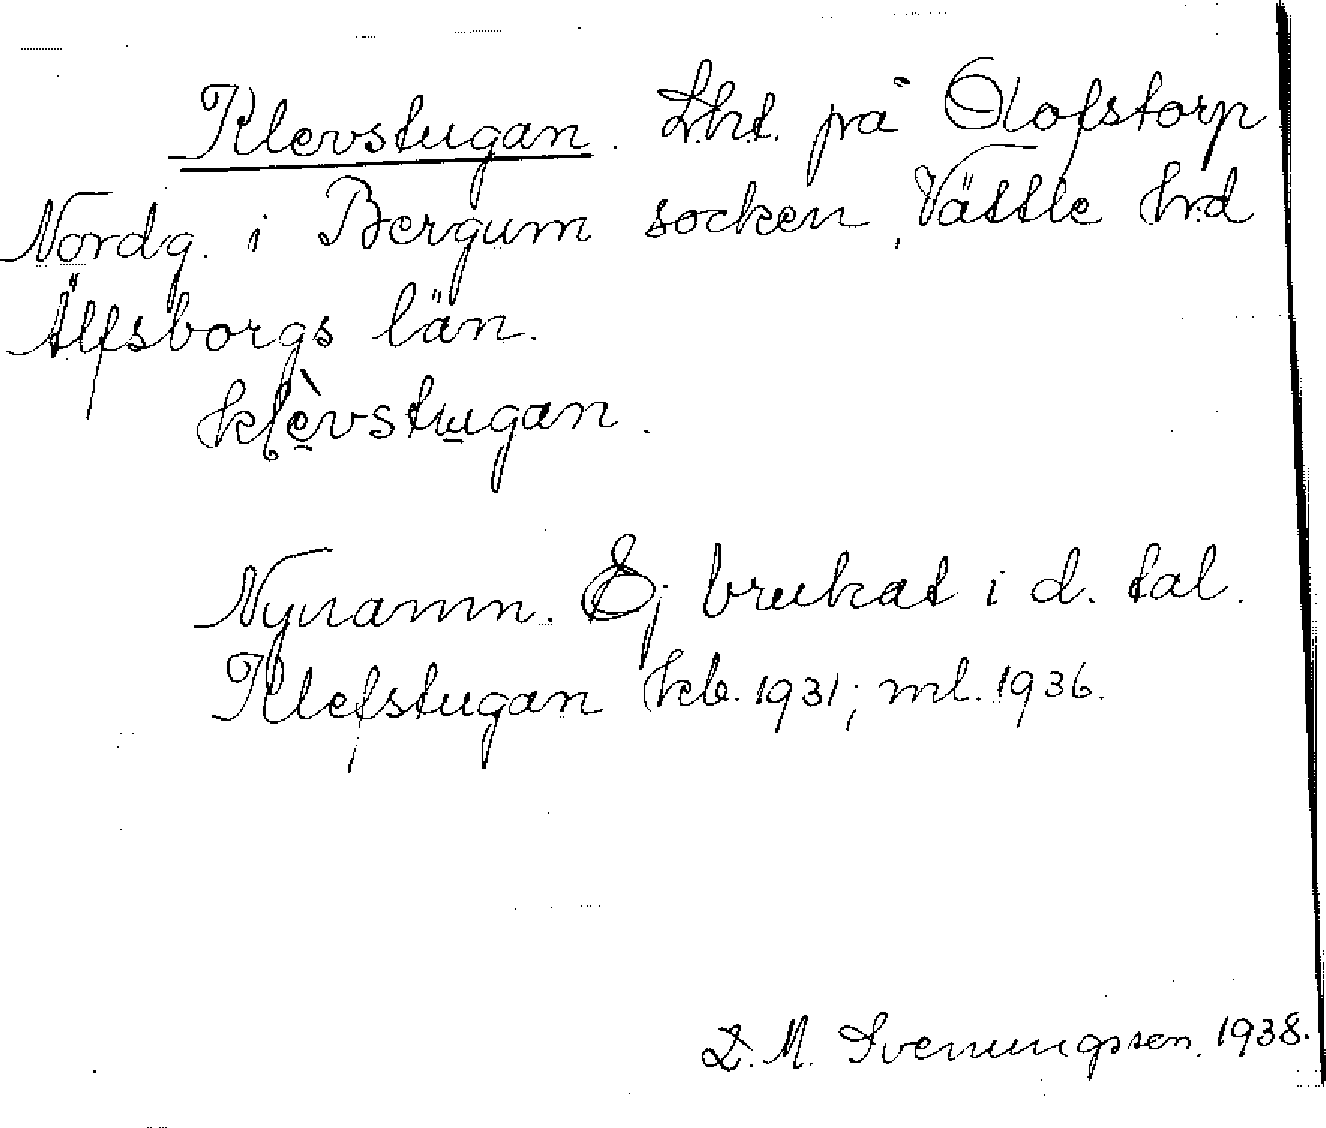 Klevstugan. Lht. på Olofstorp
Nordg. i Bergum socken, Vättle hrd
Älfsborgs län.
klè̱vstu̱gan.
Nynamn. Ej brukat i d. tal.
Klefstugan kb. 1931; ml. 1936.
L. M. Svenungsson. 1938.